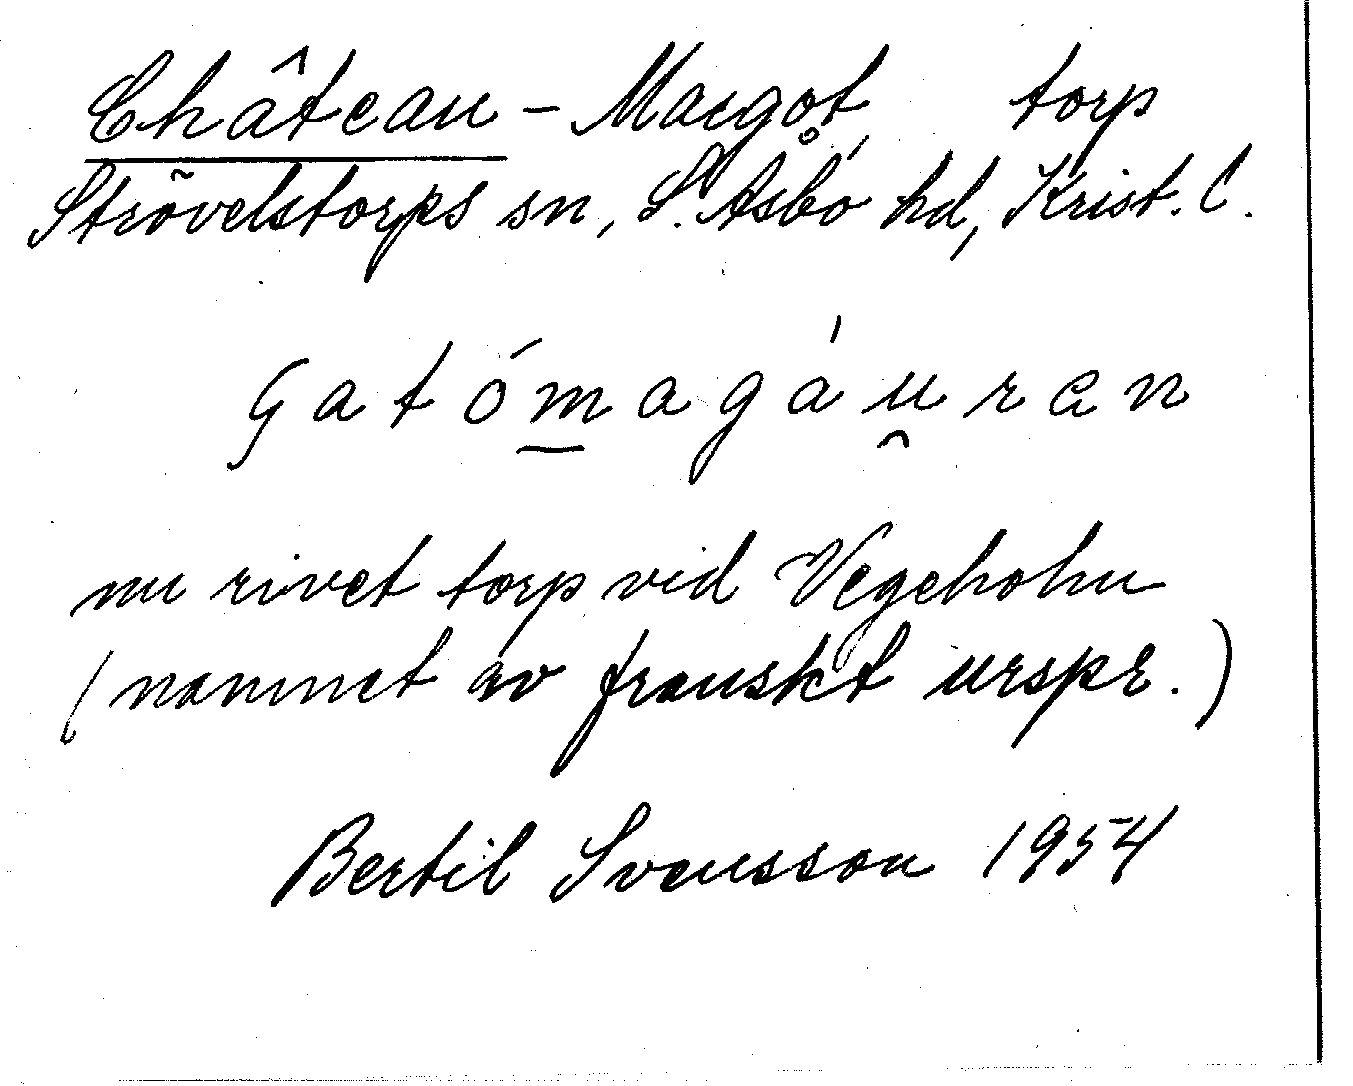 Château - Margot, torp
Strövelstorps sn, S. Åsbo hd, Krist. l.
gatómagáuran
nu rivet torp vid Vegeholm
(namnet av franskt urspr.)
Bertil Svensson 1954